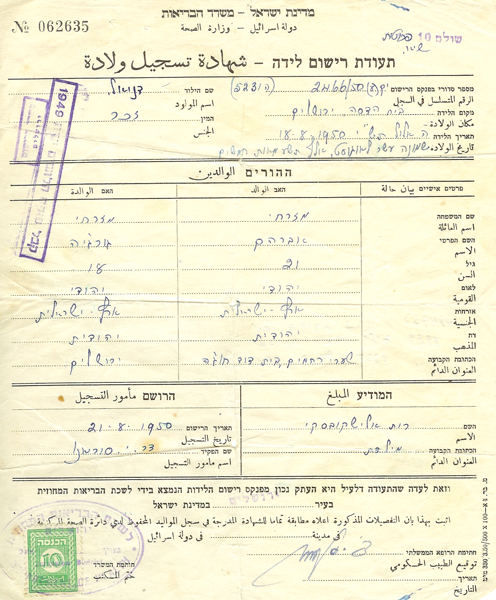 מדינת ישראל - משרד הבריאות
دولة اسرائيل - وزارة الصحة
№ 062635
שולם 10
תעודת רישום לידה - شهادة تسجيل ولادة
מספר סדורי בפנקס הרישום 2466/50
الرقم المتسلسل في السجل
שם הילוד דניאל
اسم المولود
מקום הלידה בית הדסה, ירושלים
مكان الولادة
המין זכר
الجنس
תאריך הלידה ה' אלול תש"י 18.8.1950
تاريخ الولادة שמונה עשר לאוגוסט, אלף תשע מאות חמשים
ההורים الوالدين
פרטים אישיים بيان حالة
האב الوالد
האם الوالدة
שם המשפחה מזרחי מזרחי
اسم العائلة
השם הפרטי אברהם גורג'יה
الاسم
גיל 21 18
السن
לאום יהודי יהודי
القومية
אזרחות ארץ-ישראלית ארץ-ישראלית
الجنسية
דת יהודית יהודית
المذهب
הכתובת הקבועה שערי רחמים, בית דוד חוג'ה ירושלים
العنوان الدائم
המודיע المبلغ
הרושם مأمور التسجيل
השם רות
الاسم
הכתובת הקבועה מילדת
العنوان الدائم
תאריך הרישום 21.8.1950
تاريخ التسجيل
שם הפקיד
اسم مأمور التسجيل
וזאת לעדה שהתעודה דלעיל היא העתק נכון מפנקס רישום הלידות הנמצא בידי לשכת הבריאות המחוזית
בעיר ירושלים במדינת ישראל
اثبت بهذا بان التفصيلات المذكورة اعلاه مطابقة تماما للشهادة المدرجة في سجل المواليد المحفوظ لدى دائرة الصحة المركزية
في مدينة في دولة اسرائيل
חתימת הרופא הממשלתי
توقيع الطبيب الحكومي
חותמת המשרד
ختم المكتب
הכנסה
10
1949
ירושלים